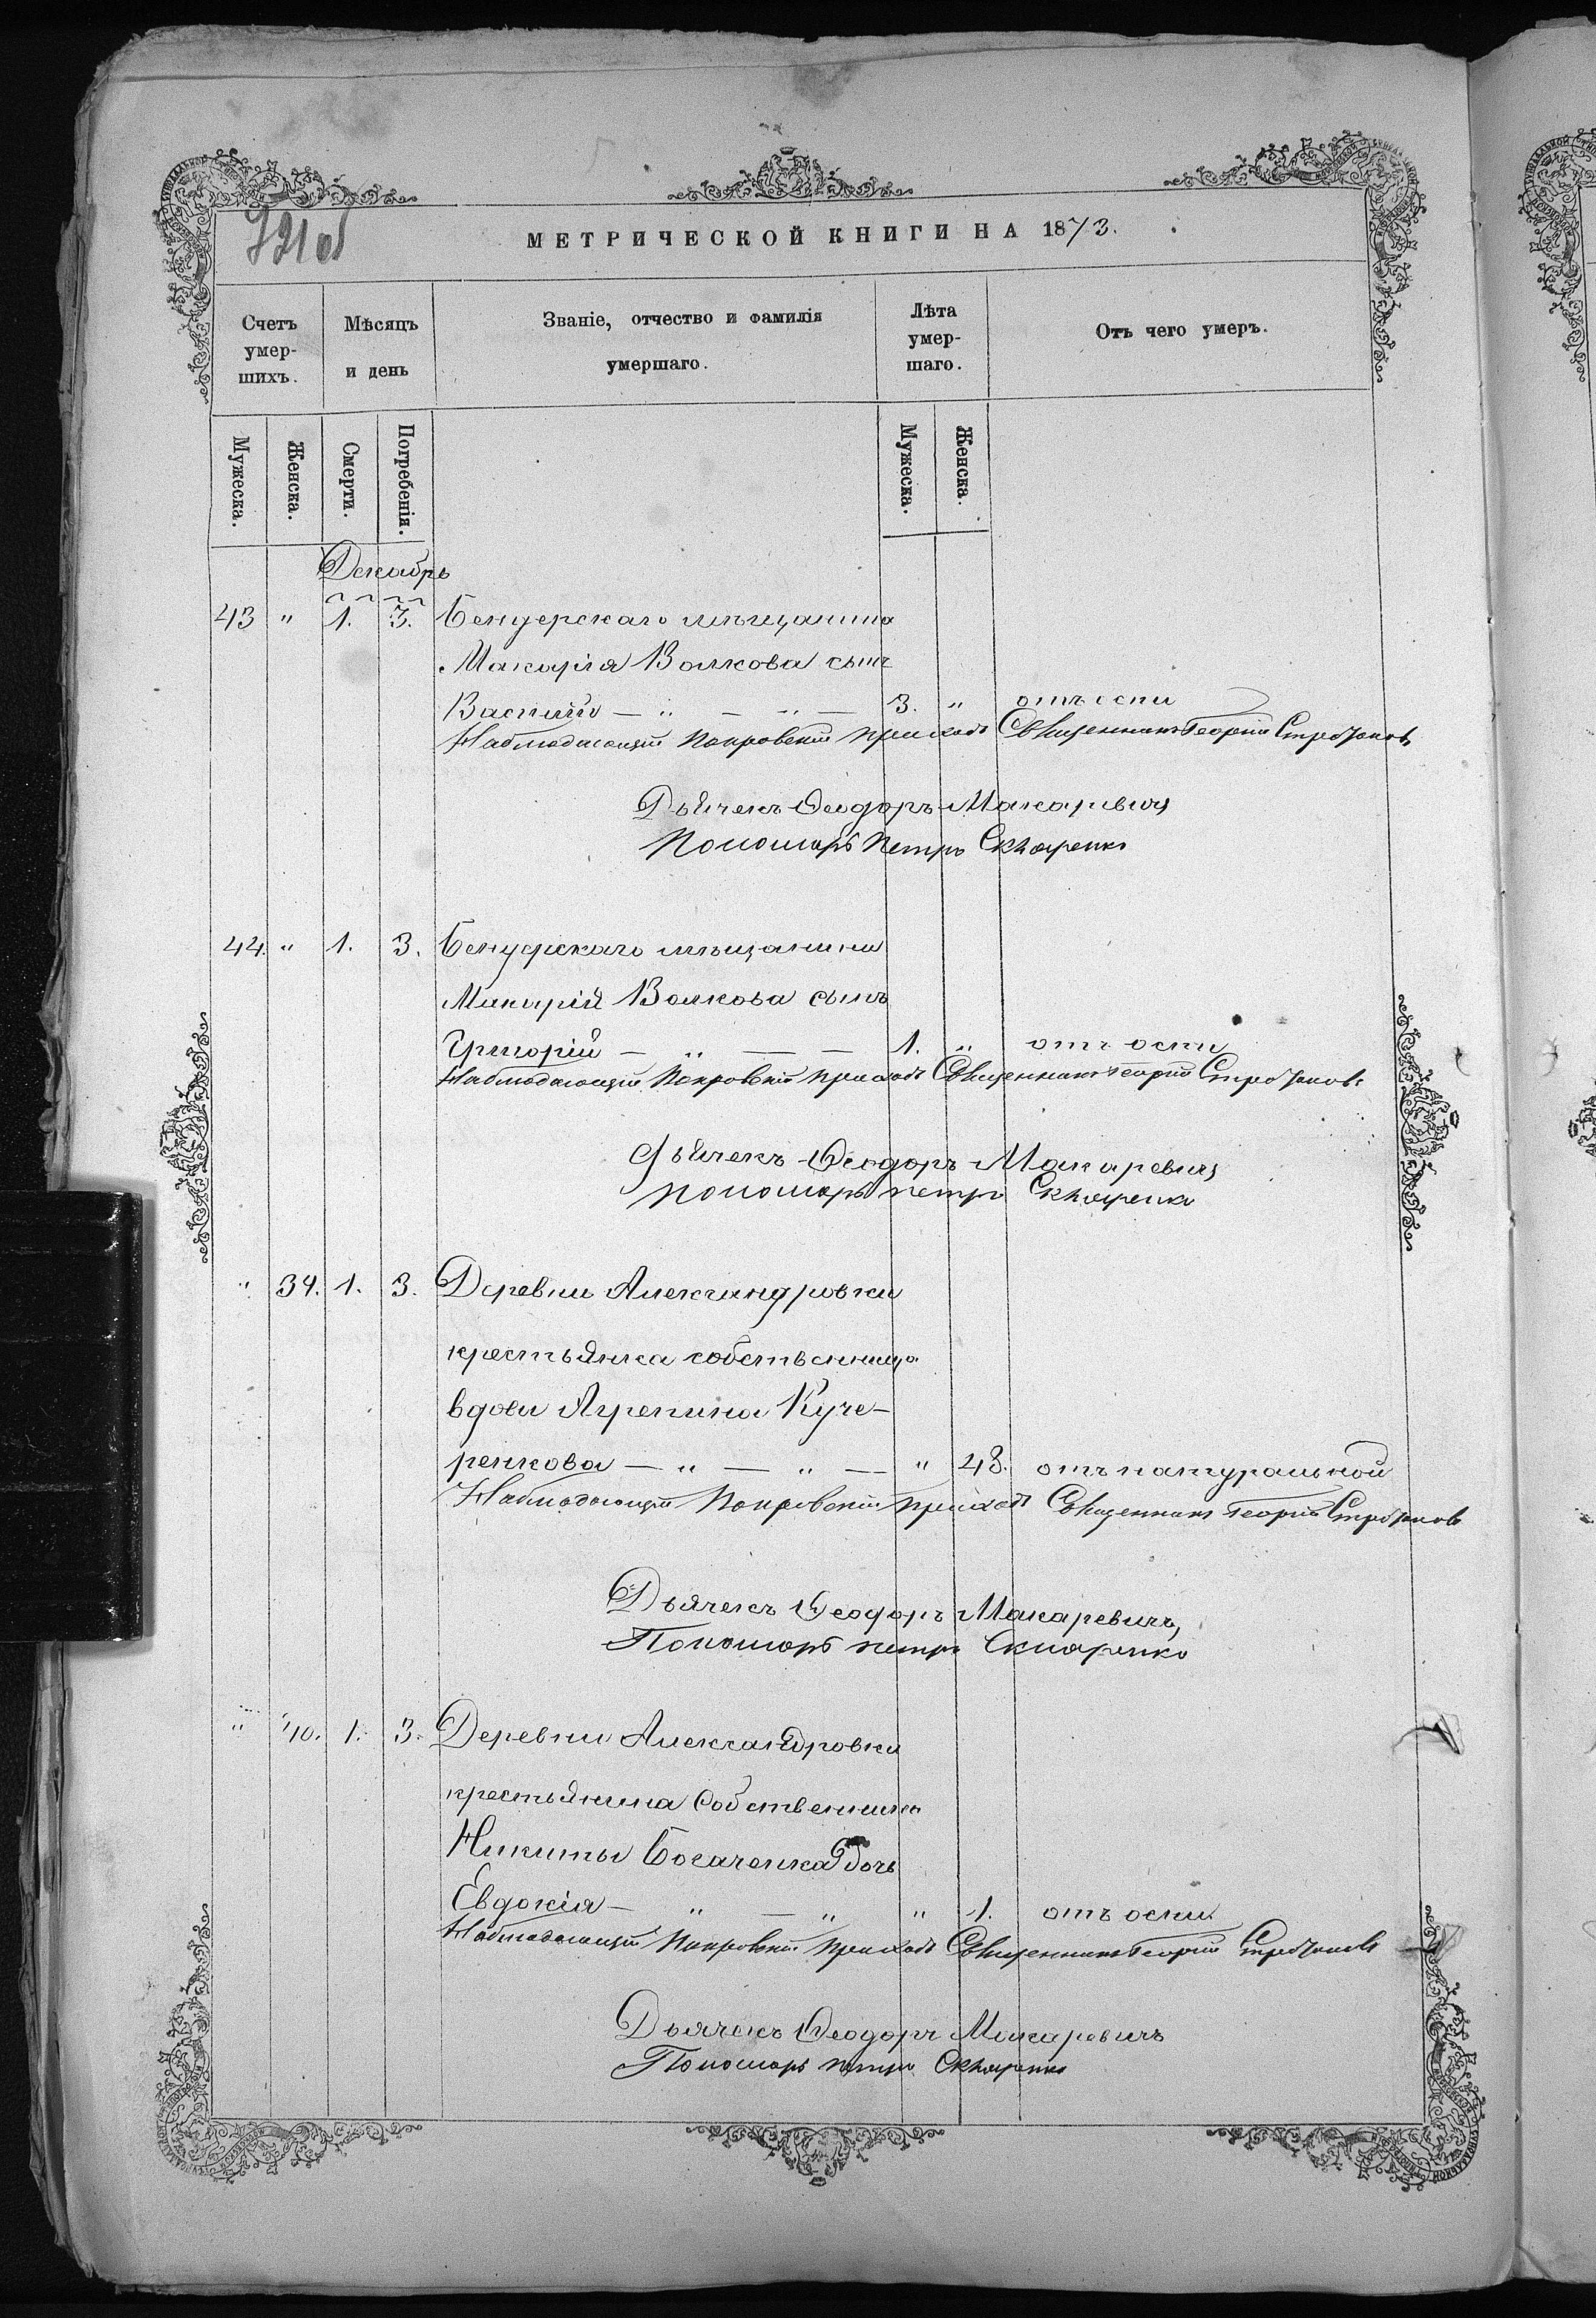 321 об
МЕТРИЧЕСКОЙ КНИГИ НА 1873.
Счетъ умер-шихъ. Мѣсяцъ и день Званіе, отчество и фамилія умершаго. Лѣта умер-шаго. Отъ чего умеръ.
Мужеска. Женска. Смерти. Погребенія. Мужеска. Женска.
Декабрь
43 " 1. 3. Бендерскаго мѣщанина
Макарія Волкова сынъ
Василій — " — " — 3. " отъ оспи
Наблюдающій Покровскій приходъ Священникъ Георгій
Дьячекъ Ѳеодоръ Макаревичъ
Пономарь Петръ Скляренко
44. " 1. 3. Бендерскаго мѣщанина
Макарія Волкова сынъ
Григорій — " — — 1. " отъ оспи
Наблюдающій Покровскій приходъ Священникъ Георгій
Дьячекъ Ѳеодоръ Макаревичъ
Пономарь Петръ Скляренко
" 39. 1. 3. Деревни Александровки
крестьянка собственница
вдова Агрепина Куче-
ренкова — " — " — " 48. отъ натуральной
Наблюдающій Покровскій приходъ Священникъ Георгій
Дьячекъ Ѳеодоръ Макаревичъ,
Пономарь Петръ Скляренко
" 40. 1. 3. Деревни Александровки
крестьянина собственника
Никиты Богаченка дочь
Евдокія — " — " " 1. отъ оспи.
Наблюдающій Покровскій приходъ Священникъ Георгій
Дьячекъ Ѳеодоръ Макаревичъ
Пономарь Петръ Скляренко